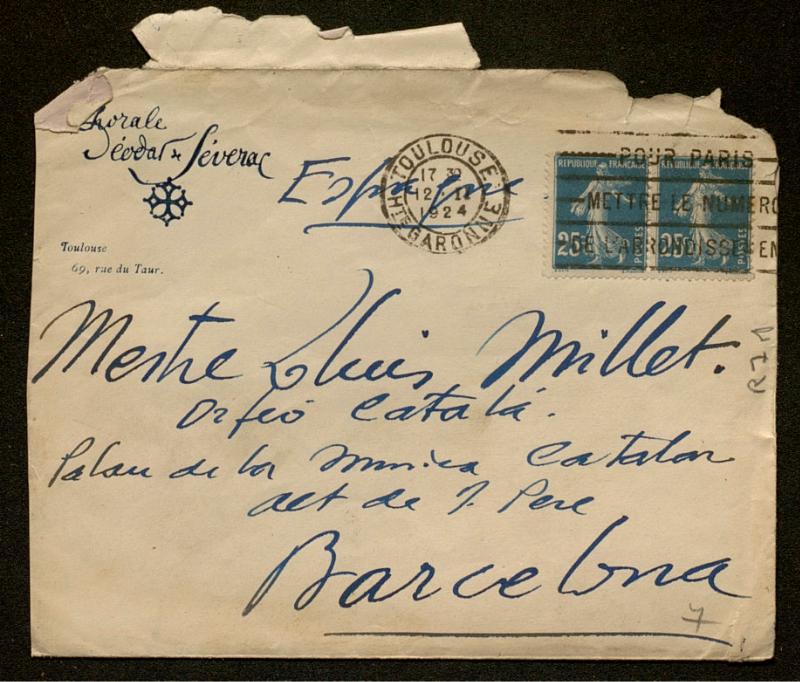 Chorale
Déodat de Séverac
Toulouse
69, rue du Taur.
Espagne
TOULOUSE
17 30
12 II
1924
HTE GARONNE
POUR PARIS
METTRE LE NUMERO
DE L'ARRONDISSEMEN
REPUBLIQUE FRANÇAISE
25
POSTES
REPUBLIQUE FRANÇAISE
25
POSTES
Mestre Lluis Millet.
Orfeó Catalá.
Palau de la Musica Catalan
alt de S. Pere
Barcelona
7
R 7 1